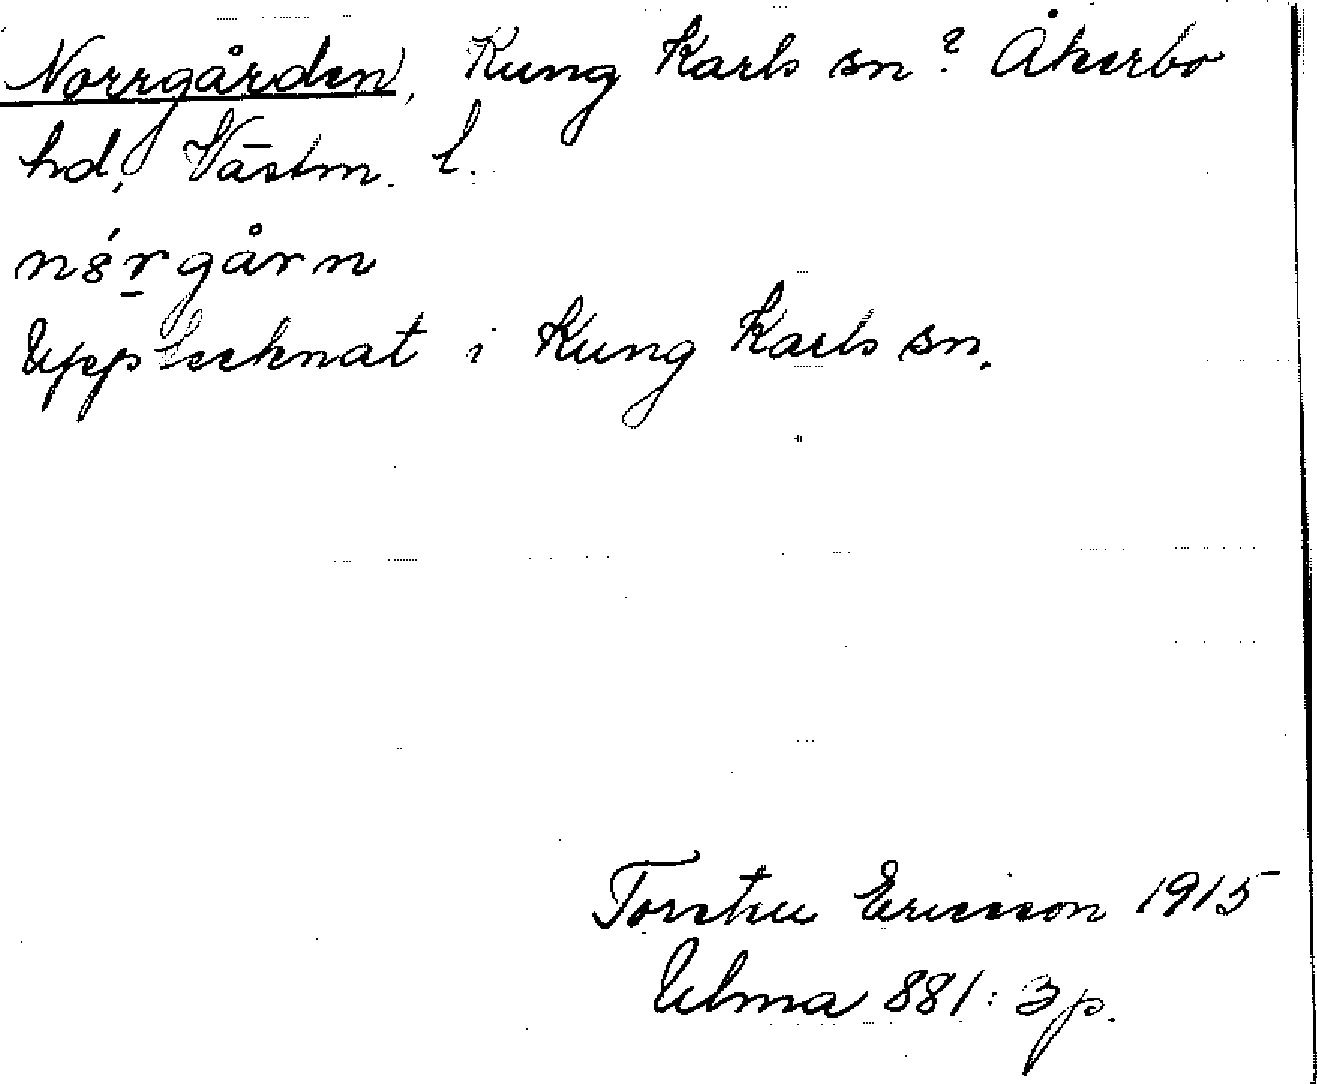 Norrgården, Kung Karls sn? Åkerbo
hd, Västm. l.
nórgårn
Upptecknat i Kung Karls sn.
Torsten Ericsson 1915
Ulma 881:3 p.